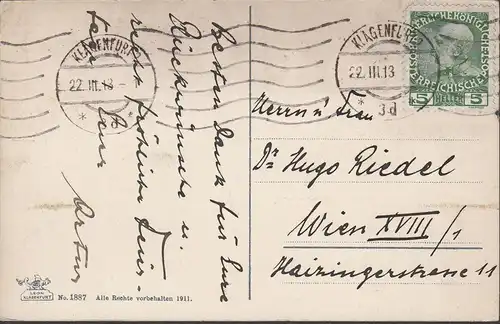 Besten Dank für Eure
Glückwünsche u.
recht fröhliche Feier-
Artur
KLAGENFURT
22.III.13
*
KLAGENFURT
22.III.13
* 3d
5 HELLER 5
Herrn u Frau
Dr Hugo Riedel
Wien XVIII/1
Haizingerstrasse 11
KLAGENFURT
No. 1887 Alle Rechte vorbehalten 1911.